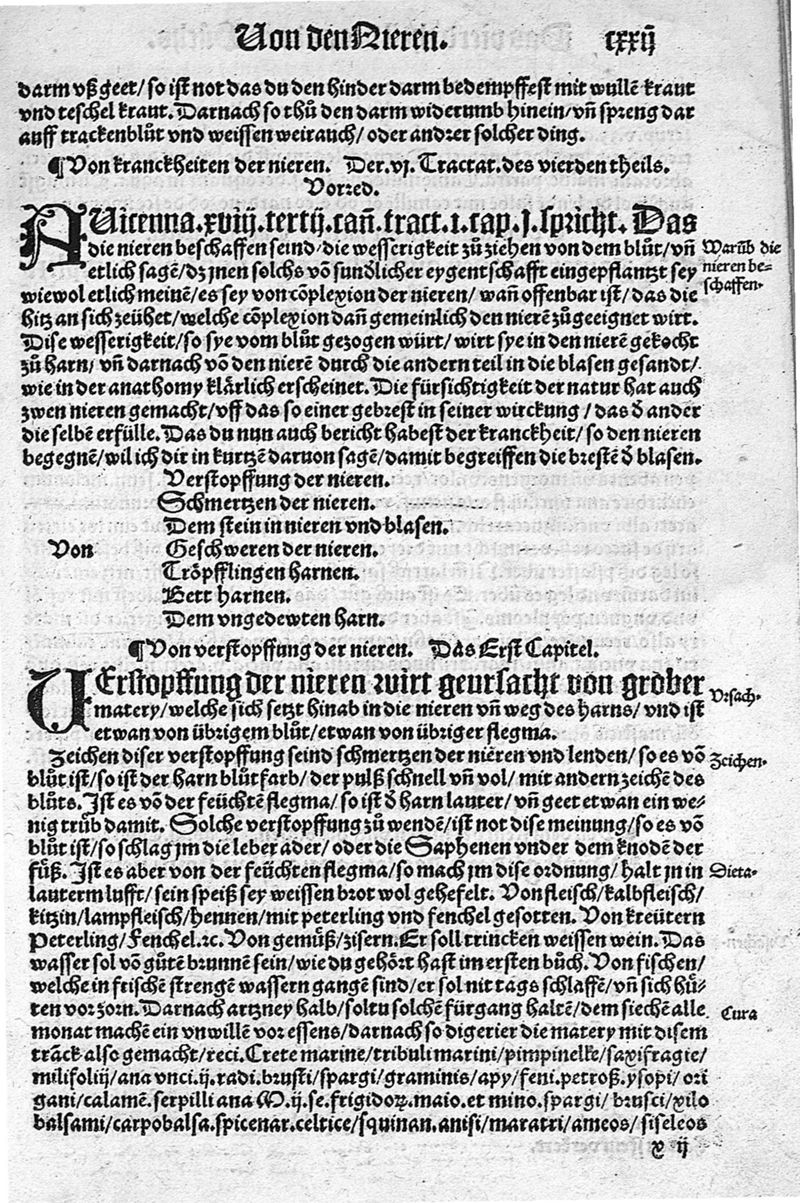 Von den Nieren. cxxij
darm vß geet/ so ist not das du den hinder darm bedempffest mit wullē kraut
vnd teschel kraut. Darnach so thů den darm widerumb hinein/ vñ spreng dar
auff trackenblůt vnd weissen weirauch/ oder andrer solcher ding.
¶Von kranckheiten der nieren. Der.vj. Tractat. des vierden theils.
Vorred.
AUicenna.xviij.tertij.cañ.tract.i.cap.j.spricht. Das
die nieren beschaffen seind/ die wesserigkeit zů ziehen von dem blůt/ vñ
etlich sagē/ dz jnen solchs vō sunđlicher eygentschafft eingepflantzt sey
wiewol etlich meinē/ es sey von cōplexion der nieren/ wañ offenbar ist/ das die
hitz an sich zeühet/ welche cōplexion dañ gemeinlich den nierē zůgeeignet wirt.
Dise wesserigkeit/ so sye vom blůt gezogen würt/ wirt sye in den nierē gekocht
zů harn/ vñ darnach vō den nierē durch die andern teil in die blasen gesandt/
wie in der anathomy klärlich erscheinet. Die fürsichtigkeit der natur hat auch
zwen nieren gemacht/ vff das so einer gebrest in seiner wirckung / das đ ander
die selbē erfülle. Das du nun auch bericht habest der kranckheit/ so den nieren
begegnē/ wil ich dir in kurtzē daruon sagē/ damit begreiffen die brestē đ blasen.
Warūb die
nieren be-
schaffen.
Verstopffung der nieren.
Schmertzen der nieren.
Dem stein in nieren vnd blasen.
Von Geschweren der nieren.
Tröpfflingen harnen.
Bett harnen.
Dem vngedewten harn.
¶Von verstopffung der nieren. Das Erst Capitel.
VErstopffung der nieren wirt geursacht von grober
matery/ welche sich setzt hinab in die nieren vñ weg des harns/ vnd ist
etwan von übrigem blůt/ etwan von übriger flegma.
Vrsach.
Zeichen diser verstopffung seind schmertzen der nieren vnd lenden/ so es vō
blůt ist/ so ist der harn blůtfarb/ der pulß schnell vñ vol/ mit andern zeichē des
blůts. Ist es vō der feüchtē flegma/ so ist đ harn lauter/ vñ geet etwan ein we-
nig trůb damit. Solche verstopffung zů wendē/ ist not dise meinung/ so es vō
blůt ist/ so schlag jm die leber ader/ oder die Saphenen vnder dem knodē der
fůß. Ist es aber von der feüchten flegma/ so mach jm dise ordnung/ halt jn in
lauterm lufft/ sein speiß sey weissen brot wol gehefelt. Von fleisch/ kalbfleisch/
kitzin/ lampfleisch/ hennen/ mit peterling vnd fenchel gesotten. Von kreütern
Peterling/ Fenchel.ꝛc. Von gemůß/ zisern. Er soll trincken weissen wein. Das
wasser sol vō gůtē brunnē sein/ wie du gehört hast im ersten bůch. Von fischen/
welche in frischē strengē wassern gangē sind/ er sol nit tags schlaffē/ vñ sich hü-
ten vor zorn. Darnach artzney halb/ soltu solchē fürgang haltē/ dem siechē alle
monat machē ein vnwillē vor essens/ darnach so digerier die matery mit disem
tranck also gemacht/ reci. Crete marine/ tribuli marini/ pimpinelke/ saxifragie/
milifolij/ ana vnci.ij. radi.brusti/ spargi/ graminis/ apy/ feni.petroß.ysopi/ ori
gani/ calamē.serpilli ana M.ij.se.frigidoꝝ.maio.et mino.spargi/ brusci/ xilo
balsami/ carpobalsa.spicenar.celtice/ squinan.anisi/ maratri/ ameos/ siseleos
Zeichen.
Dieta.
Cura
x ij